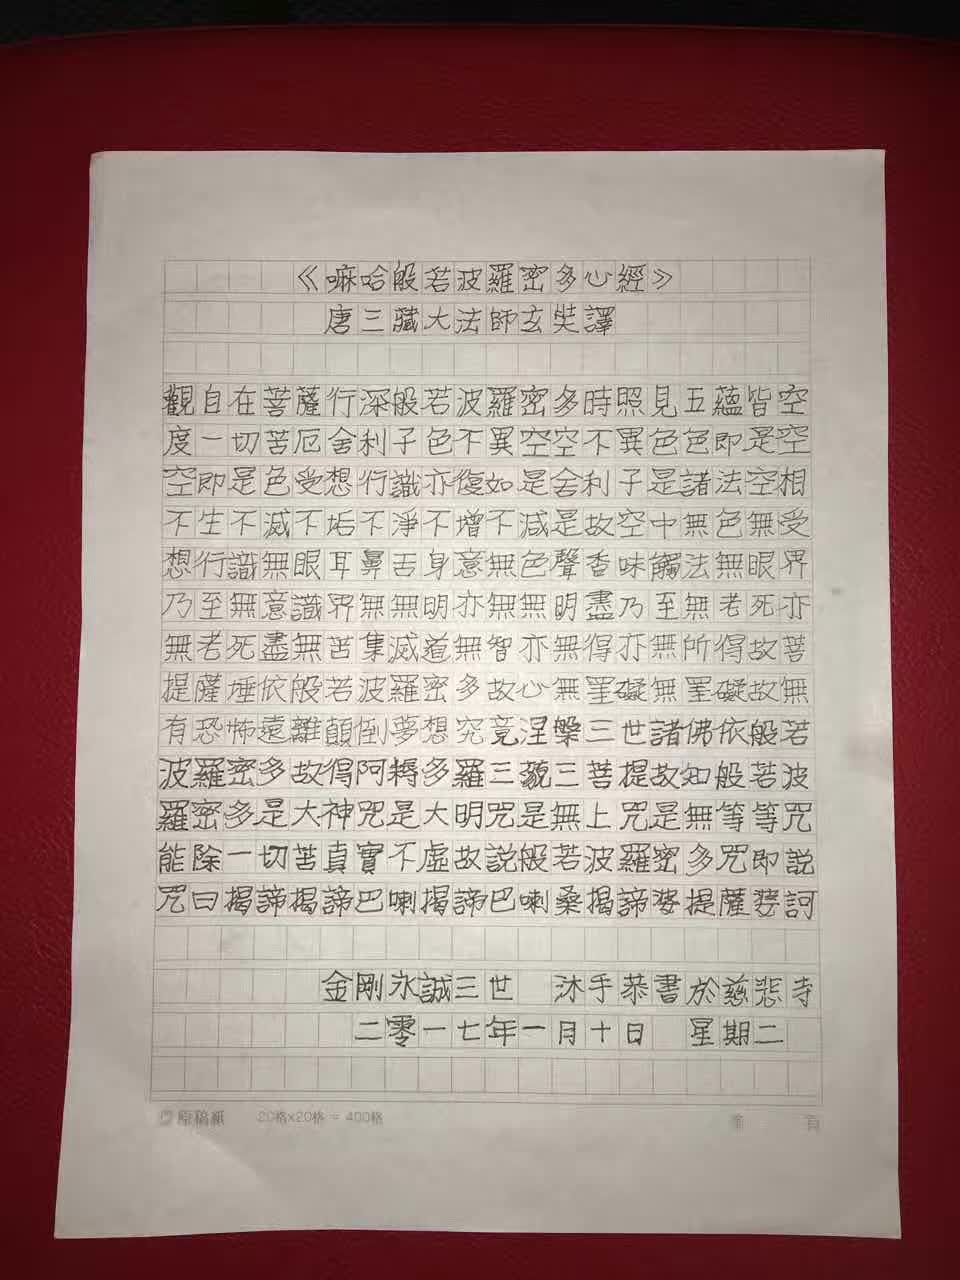 《嘛哈般若波羅密多心經》
唐三藏大法師玄奘譯
觀自在菩薩行深般若波羅密多時照見五蘊皆空
度一切苦厄舍利子色不異空空不異色色即是空
空即是色受想行識亦復如是舍利子是諸法空相
不生不滅不垢不淨不增不減是故空中無色無受
想行識無眼耳鼻舌身意無色聲香味觸法無眼界
乃至無意識界無無明亦無無明盡乃至無老死亦
無老死盡無苦集滅道無智亦無得亦無所得故菩
提薩埵依般若波羅密多故心無罣礙無罣礙故無
有恐怖遠離顛倒夢想究竟涅槃三世諸佛依般若
波羅密多故得阿耨多羅三藐三菩提故知般若波
羅密多是大神咒是大明咒是無上咒是無等等咒
能除一切苦真實不虛故說般若波羅密多咒即說
咒曰揭諦揭諦巴喇揭諦巴喇桑揭諦婆提薩婆訶
金剛永誠三世 沐手恭書於慈悲寺
二零一七年一月十日 星期二
原稿紙 20格x20格 = 400格
頁